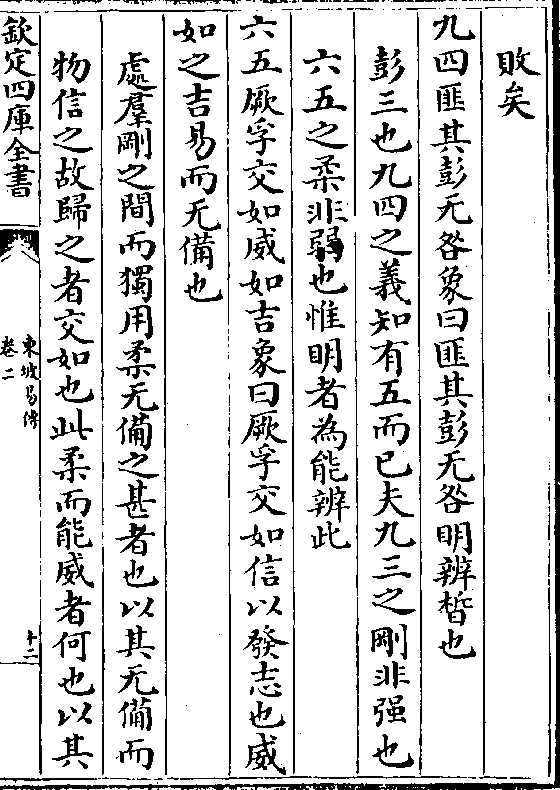 敗矣
九四匪其彭无咎象曰匪其彭无咎明辨晳也
彭三也九四之義知有五而已夫九三之剛非强也
六五之柔非弱也惟明者為能辨此
六五厥孚交如威如吉象曰厥孚交如信以發志也威
如之吉易而无備也
處羣剛之間而獨用柔无備之甚者也以其无備而
物信之故歸之者交如也此柔而能威者何也以其
欽定四庫全書
東坡易傳
卷二
十二